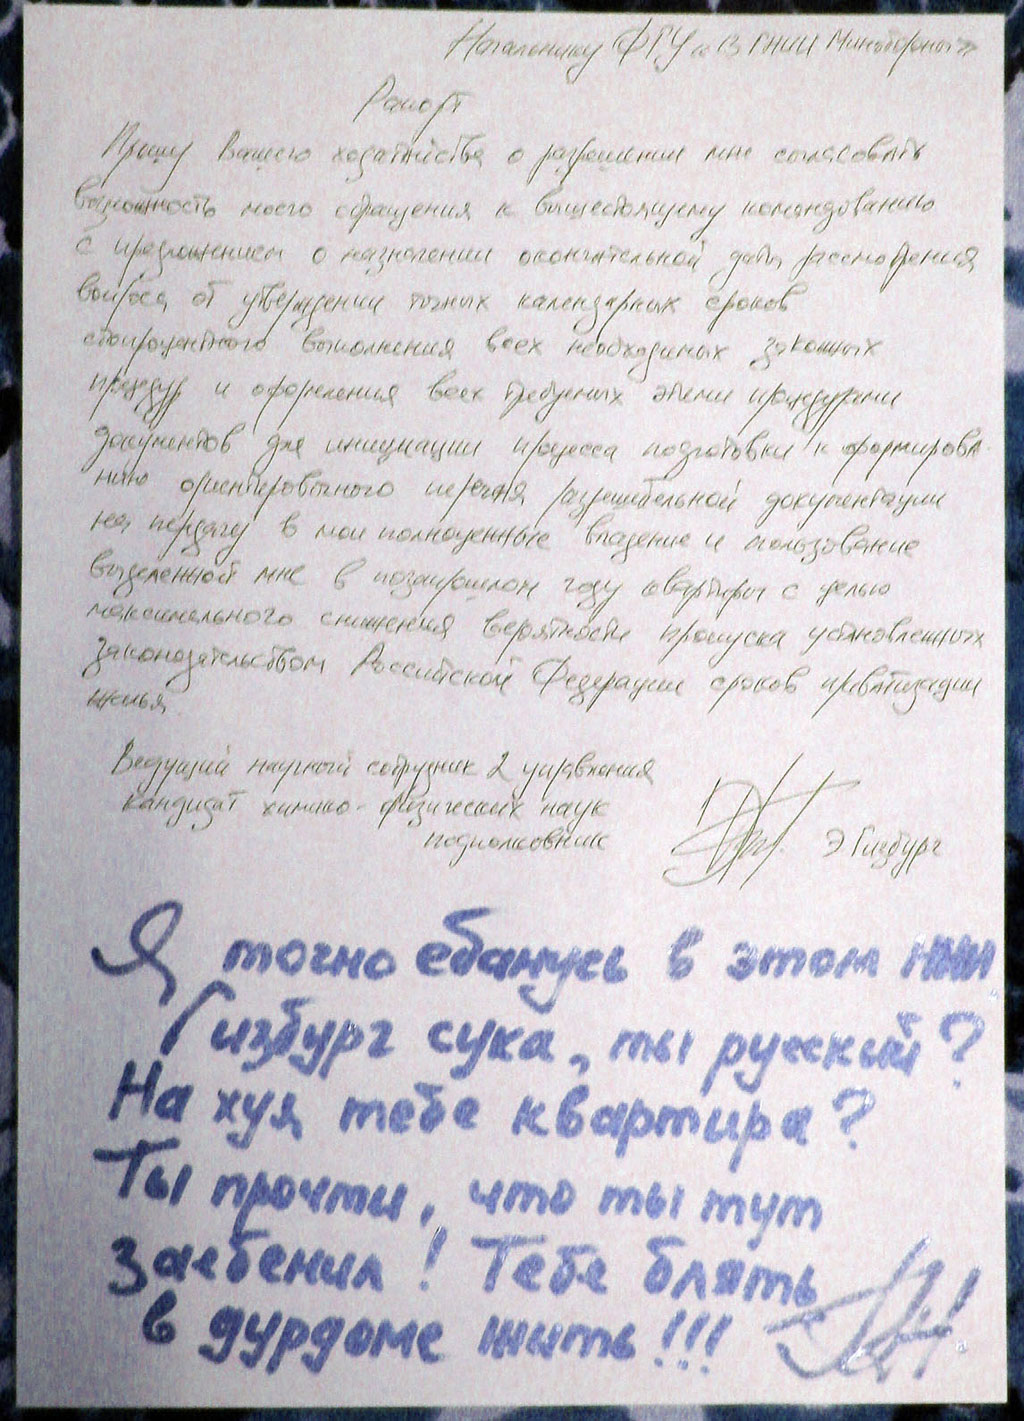 Начальнику ФГУ «В ГНИИ Минобороны»
Рапорт
Прошу Вашего ходатайства о разрешении мне согласовать
возможность моего обращения к вышестоящему командованию
с предложением о назначении окончательной даты рассмотрения
вопроса об утверждении точных календарных сроков
стопроцентного выполнения всех необходимых законных
процедур и оформления всех требуемых этими процедурами
документов для инициации процесса подготовки к формирова-
нию ориентировочного перечня разрешительной документации
на передачу в мои полноценные владение и пользование
выделенной мне в позапрошлом году квартиры с целью
максимального снижения вероятности пропуска установленных
законодательством Российской Федерации сроков приватизации
жилья
Ведущий научный сотрудник 2 управления
кандидат химико-физических наук
подполковник
Э Гизбург
Я точно ебанусь в этом НИИ
Гизбург сука, ты русский?
На хуя тебе квартира?
Ты прочти, что ты тут
заебенил! Тебе блять
в дурдоме жить!!!